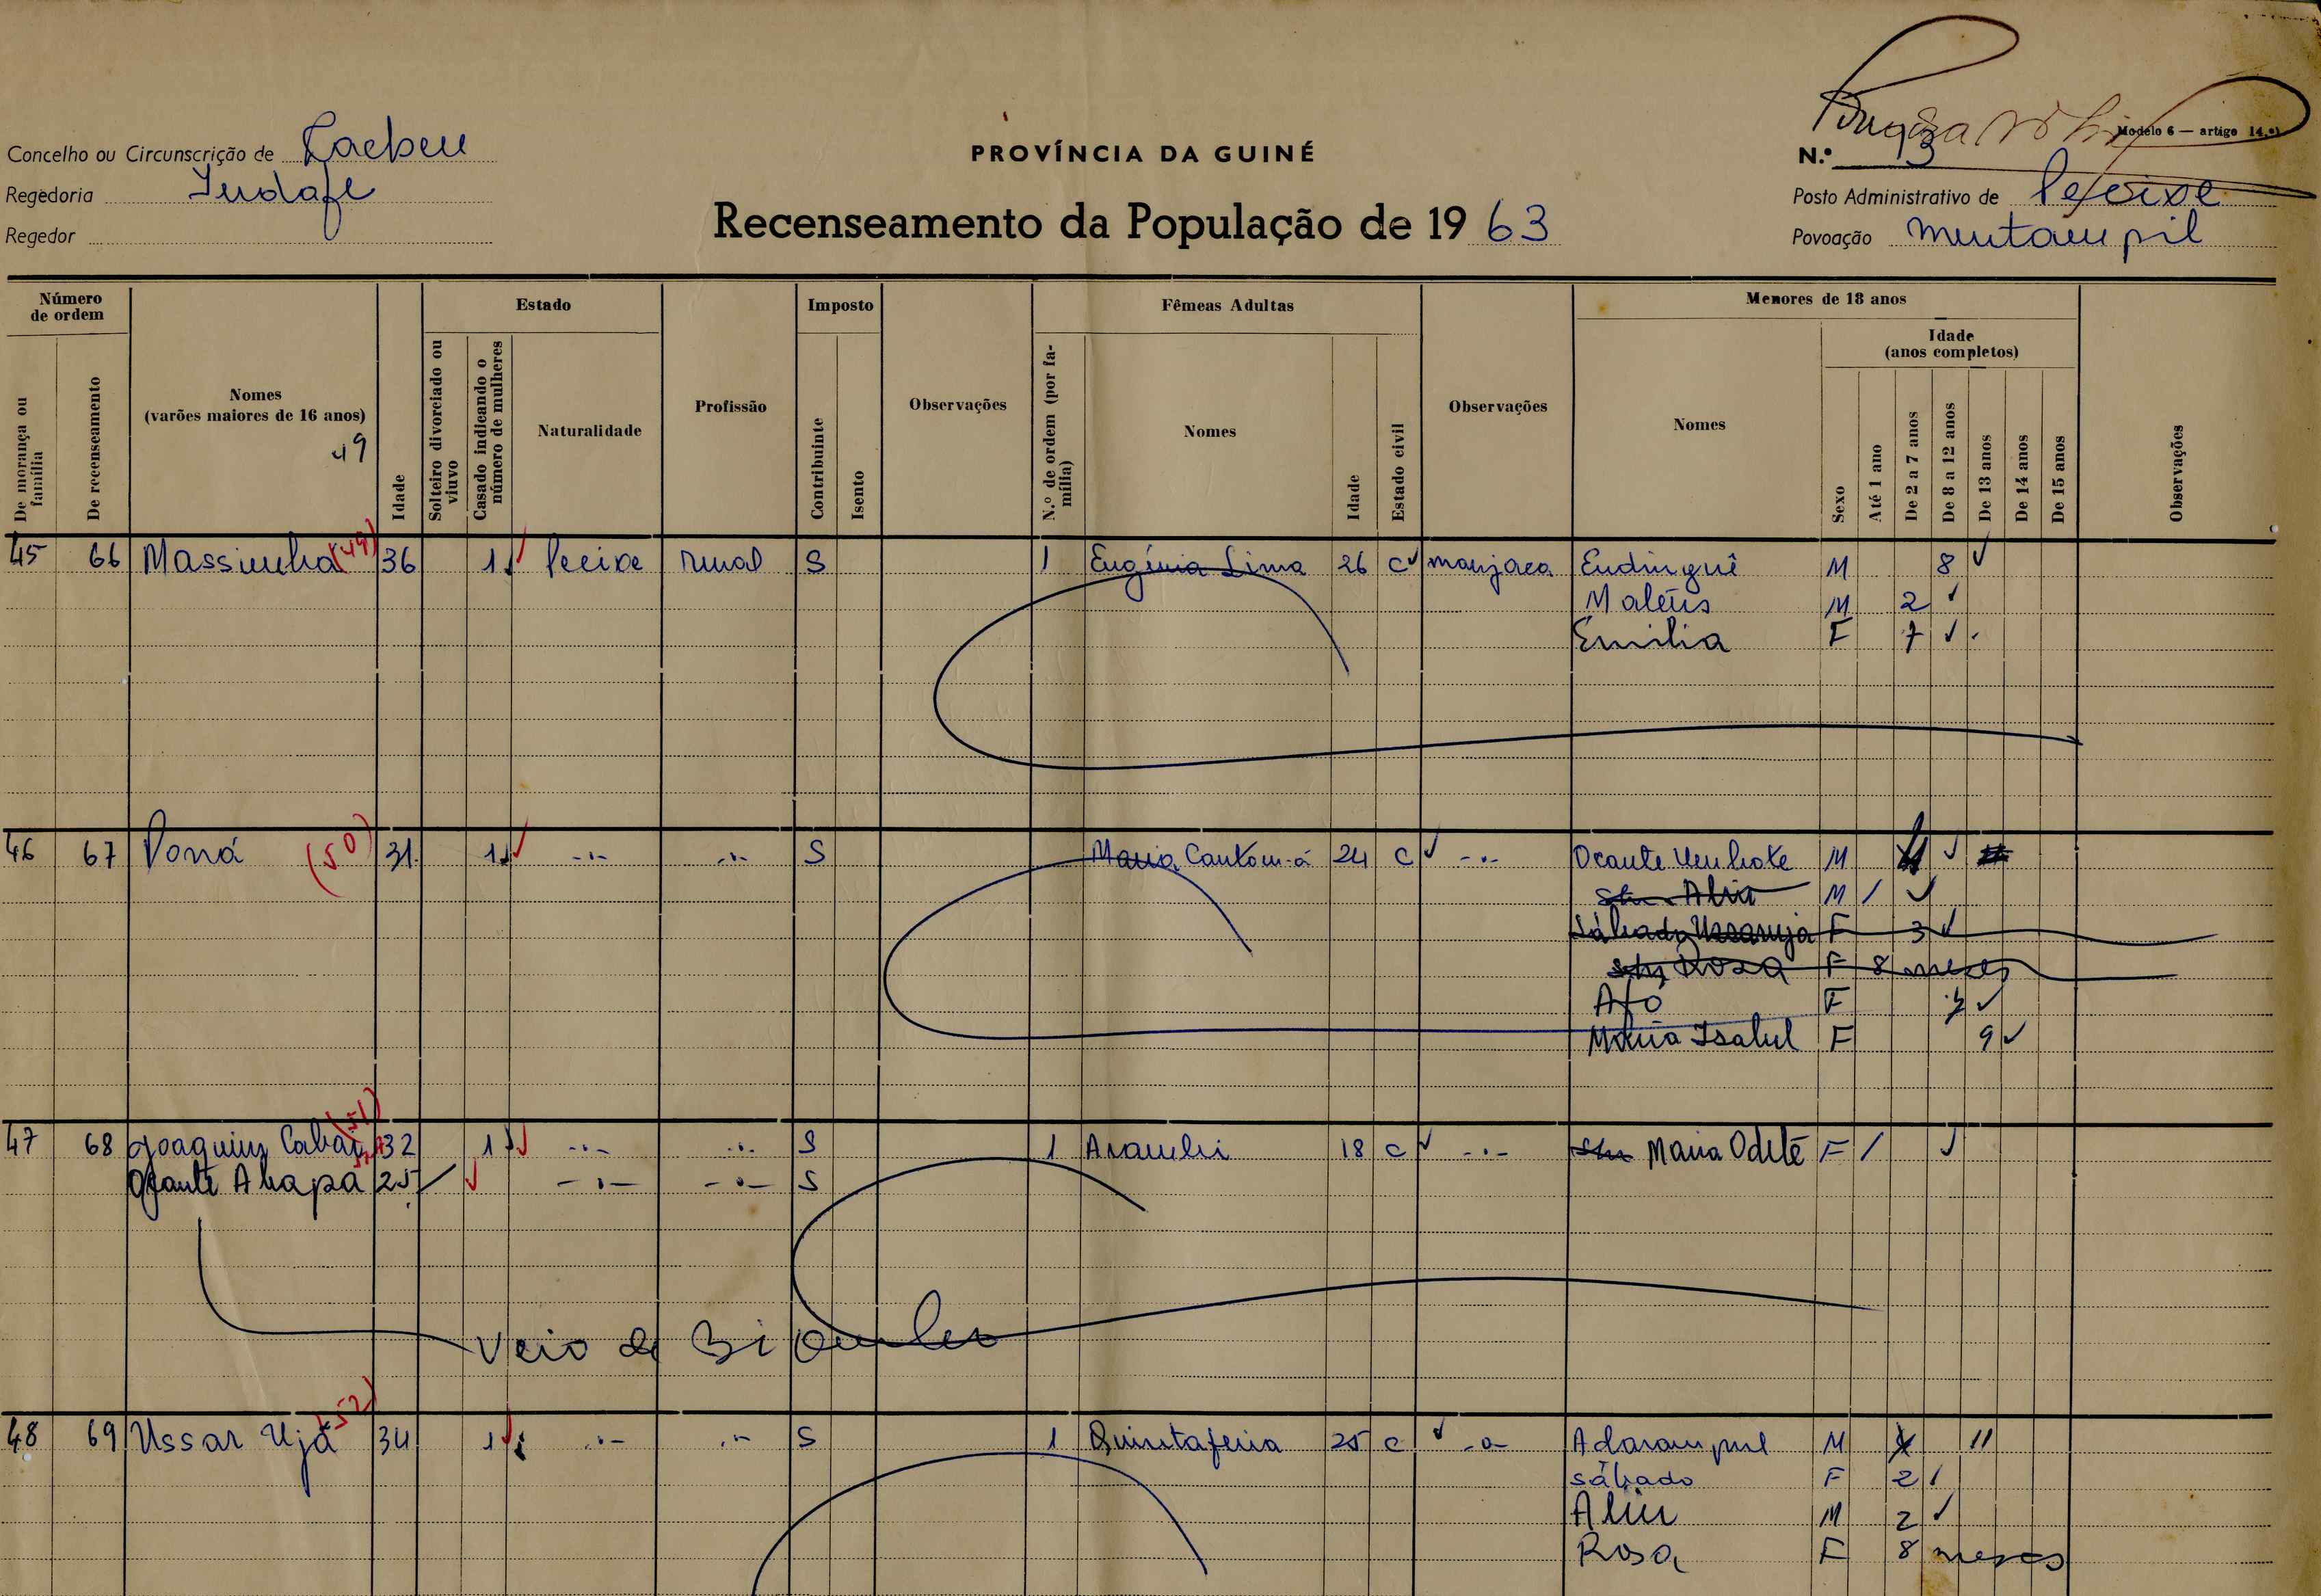 Modelo 6 — artigo 14.º)
PROVÍNCIA DA GUINÉ
Recenseamento da População de 19 63
Concelho ou Circunscrição de Cacheu
Regedoria Indafe
Regedor
N.º 13
Posto Administrativo de Pecixe
Povoação
Número de ordem
De morança ou família
De recenseamento
Nomes
(varões maiores de 16 anos)
49
Idade
Estado
Solteiro divorciado ou viuvo
Casado indicando o número de mulheres
Naturalidade
Profissão
Imposto
Contribuinte
Isento
Observações
Fêmeas Adultas
N.º de ordem (por família)
Nomes
Idade
Estado civil
Observações
Menores de 18 anos
Nomes
Sexo
Idade
(anos completos)
Até 1 ano
De 2 a 7 anos
De 8 a 12 anos
De 13 anos
De 14 anos
De 15 anos
Observações
45 66 Massinha (49) 36 1 Pecixe rural S 1 Eugénia Lima 26 C manjaca Endinguê M 8
Mateus M 2
Emilia F 7
46 67 Poná (50) 31 1 -..- -..- S Maria 24 C -..- Ocante M
s/n Alia M /
Sábado Ussaruja F 3
s/n Rosa F 8 meses
Afó F 7
Maria Isabel F 9
47 68 Joaquim Cabai (51) 32 1 -..- -..- S 1 18 C -..- s/n Maria Odete F /
Ocante Ahapá 25 / -..- -..- S
Veio de Biombo
48 69 Ussar Ujá (52) 34 1 -..- -..- S 1 Quintafeira 25 C -..- M 11
sábado F 2
Aliu M 2
Rosa F 8 meses